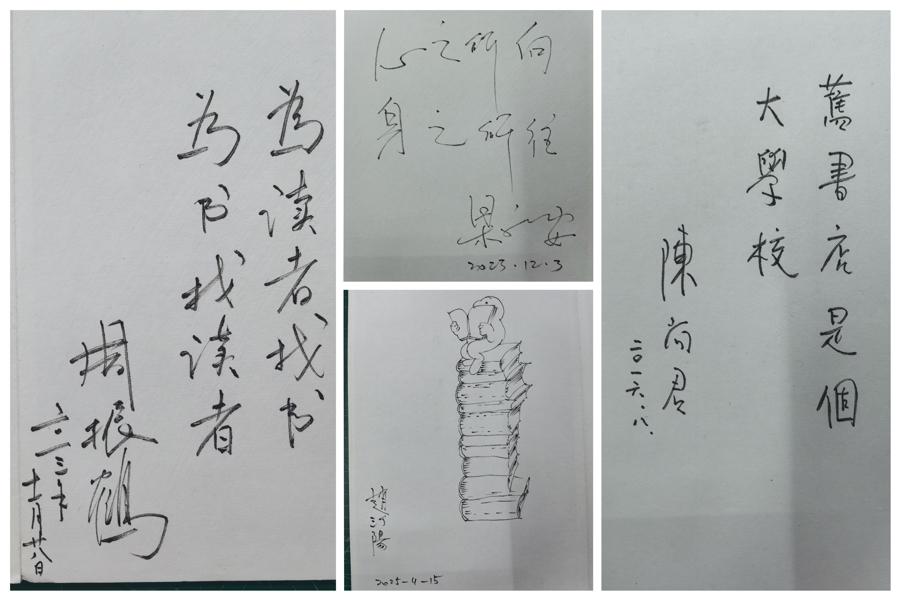 為读者找书
為书找读者
周振鶴
二〇一三年
十一月廿八日
心之所向
身之所往
梁永安
2023.12.3
趙汀陽
2025-4-15
舊書店是個
大學校
陳尚君
二〇一六.八.